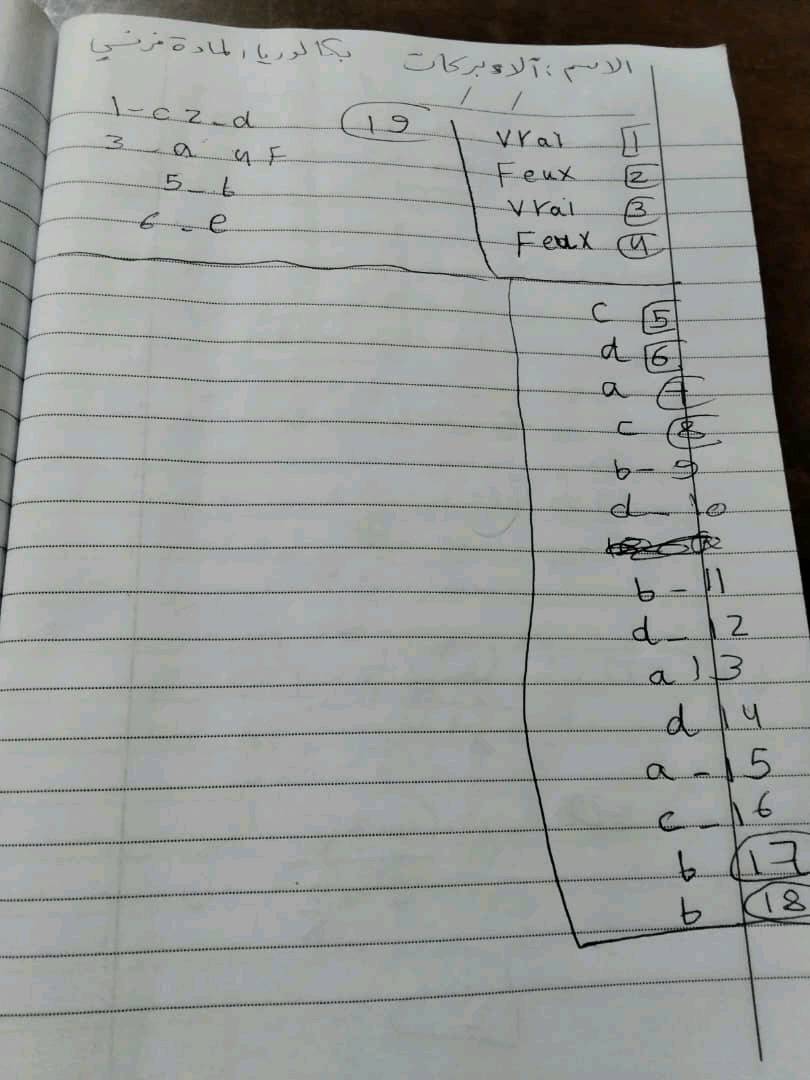 الاسم : آلاء بركات بكالوريا المادة فرنسي
/ /
Vrai 1
Feux 2
Vrai 3
Feux 4
19
1-c 2-d
3-a 4 F
5-b
6-e
c 5
d 6
a 7
c 8
b-9
d-10
b-11
d-12
a 13
d 14
a-15
c-16
b 17
b 18